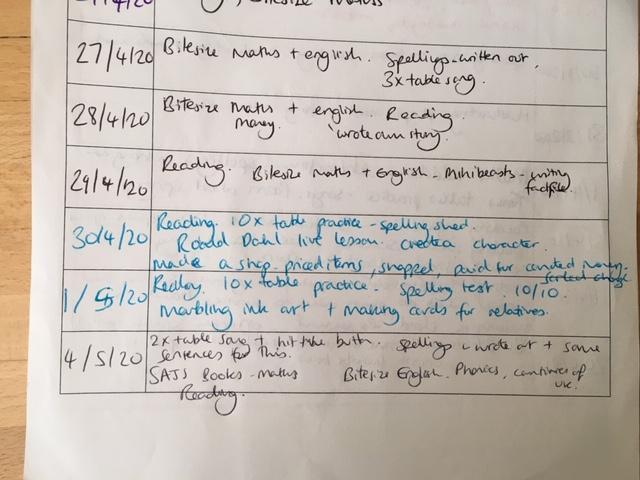 Bitesize maths
27/4/20 Bitesize maths + english. Spellings - written out,
3x table song.
28/4/20 Bitesize maths + english. Reading
money. wrote own story.
29/4/20 Reading. Bitesize maths + English - Minibeasts - writing
factfile.
30/4/20 Reading. 10x table practice - spelling shed.
Roadd Dahl live lesson. created character.
made a shop. priced items, shopped, paid for counted money
1/5/20 Reading. 10x table practice. Spelling test. 10/10.
Marbling ink art + making cards for relatives.
4/5/20 2x table song + hit the button. Spellings - wrote out + some
sentences for this.
SATS Books - maths Bitesize English. Phonics, countries of
UK.
Reading.